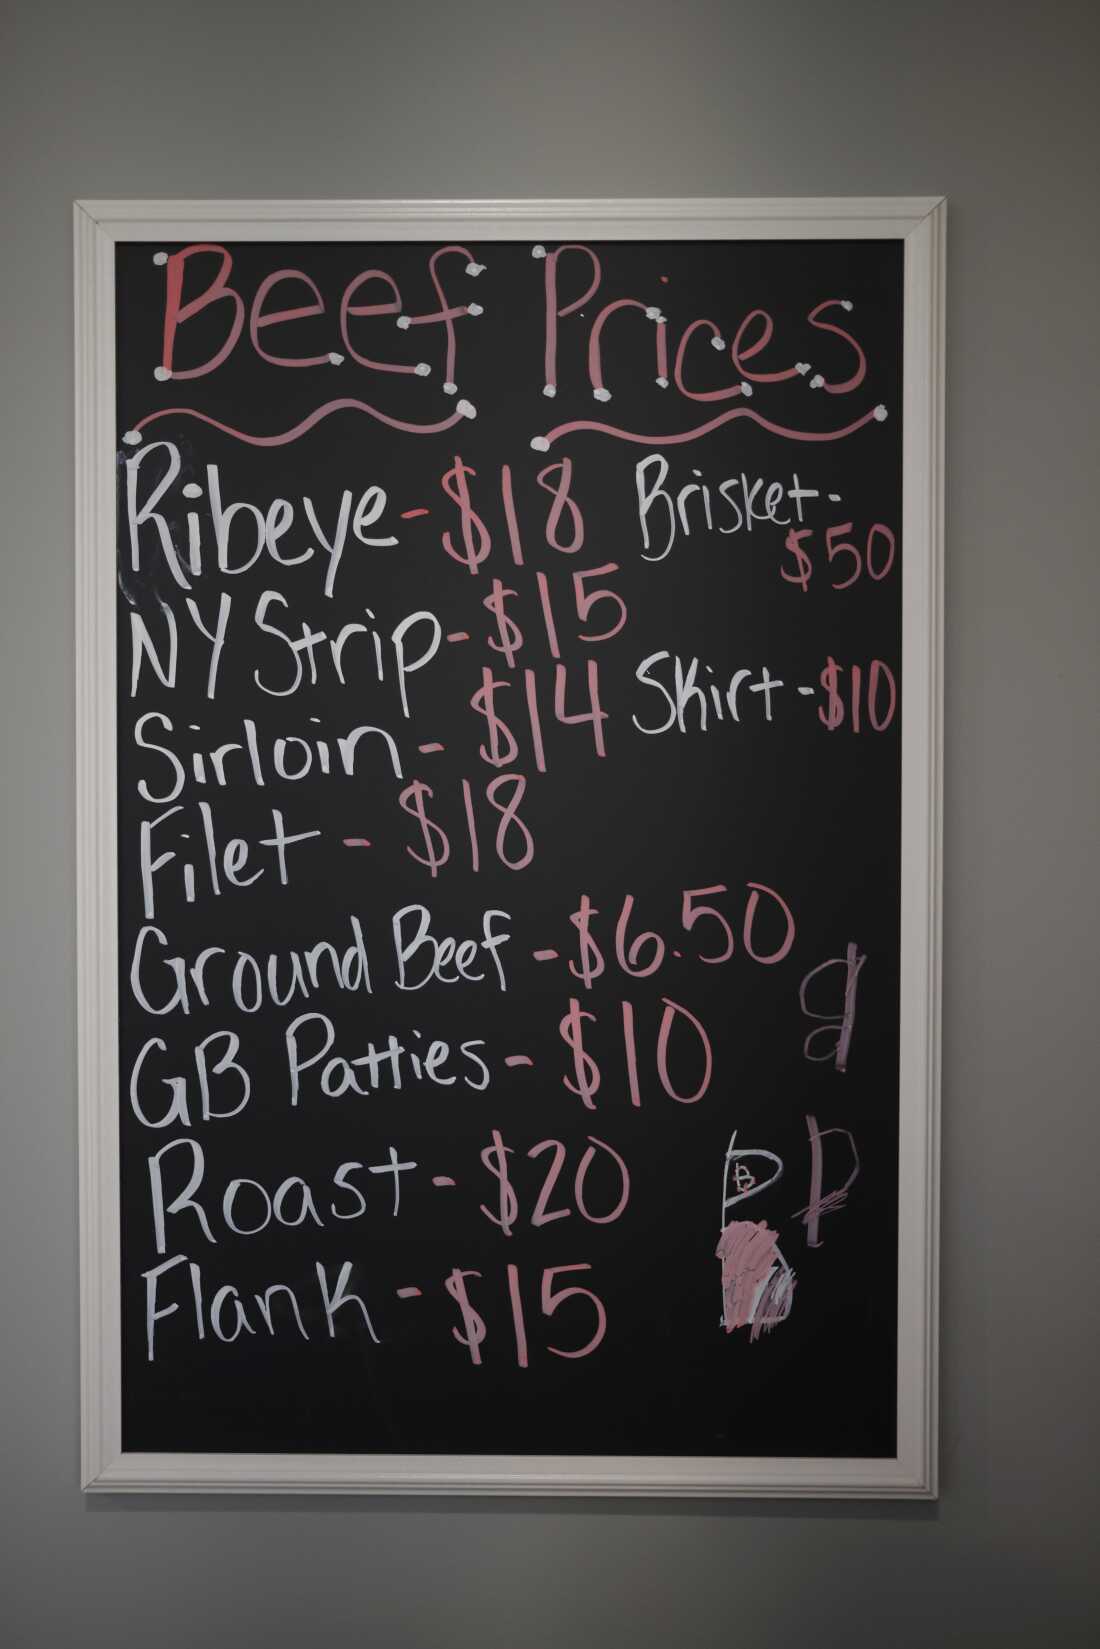 Beef Prices
Ribeye - $18
NY Strip - $15
Sirloin - $14
Filet - $18
Ground Beef - $6.50
GB Patties - $10
Roast - $20
Flank - $15
Brisket -
$50
Skirt - $10
B
P